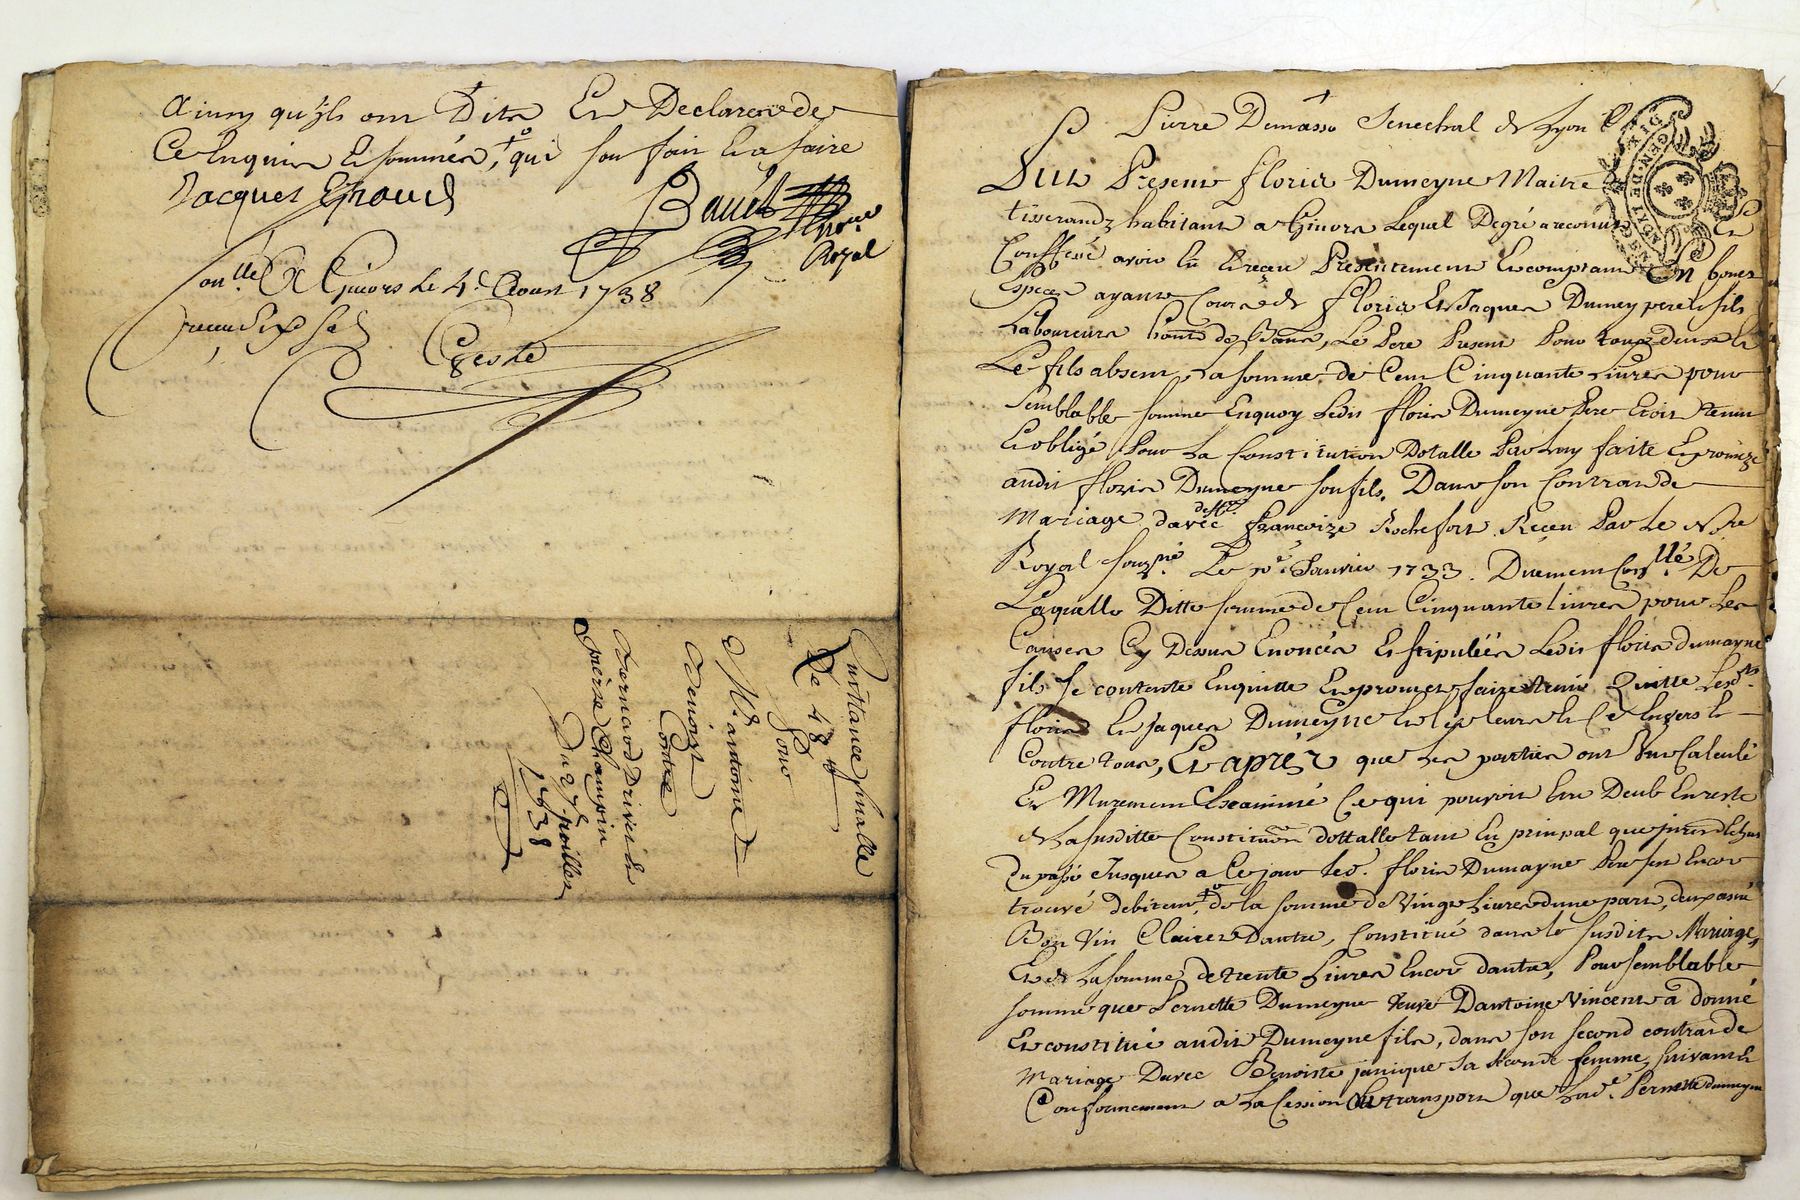 Ainsy qu'ils ont Dits Et Declarer de
Ce Enquis Et sommés, qui son fait Et a faire
Jacques Giraud
Bauet
Nore
Royal
Con.llé A Givors Le 4e Aoust 1738
receu dix sols
Geste
Quittance finalle
De 48 #
Pour
Mr. antoine
Benoist
Contre
Bernard Drivet Et
pierre Chauvin
Du 27 juillet
1738
Pierre Dumas Senechal de Lyon
GEN. DE
Fut Present floris Dumeyne Maitre
tisserand habitant a Givors Lequel De gré a reconnu Et
Confessé avoir Eu Et reçeu Presentement Et comptant En bones
Especes ayant Cours de floris Et Jaques Dumeyne pere Et fils
Laboureurs de Bans, Le Pere Present Pour tous deux Et
Le fils absent, La somme de Cent Cinquante Livres pour
Semblable somme Enquoy Ledit floris Dumeyne Pere Etoit tenu
Et obligé Pour La Constitution Dotalle Par Luy faite Et promise
audit floris Dumeyne son fils, Dans son Contrat de
Mariage davec deffte françoize Rochefort Reçeu Par Le Nore
Royal souz.né Le 10e Janvier 1733. Duement Con.llé De
Laquelle Ditte somme de Cent Cinquante livres pour Les
Causes Cy Dessus Enoncés Et stipulées Ledit floris dumayne
fils Se contente Enquitte Et promet faire tenir Quitte Lesdts
floris Et Jaques Dumeyne Et les leurs Et Ce Envers Et
Contre tous, Et aprés que Les parties ont Vu Calculé
Et Murement Examiné Ce qui pouvoit Etre Deub En reste
de La susditte Constitution dottalle tant En prinpal que
Du passé Jusques a Ce jour Led. floris Dumayne Pere sest Encor
trouvé debiteur, de la somme de Vingt Livres dune part, deux asnés
Bon Vin Clairet Dautre, Constitué dans le susdits Mariage,
Et de La somme de trente Livres Encor dautre, Pour semblable
somme que Pernette Dumeyne veuve Dantoine Vincent a donné
Et constitué audit Dumeyne fils, dans son second contrat de
Mariage Davec Benoiste janique sa seconde femme, suivant Et
Conformement a La Cession Et transport que Lade Pernette dumeyne